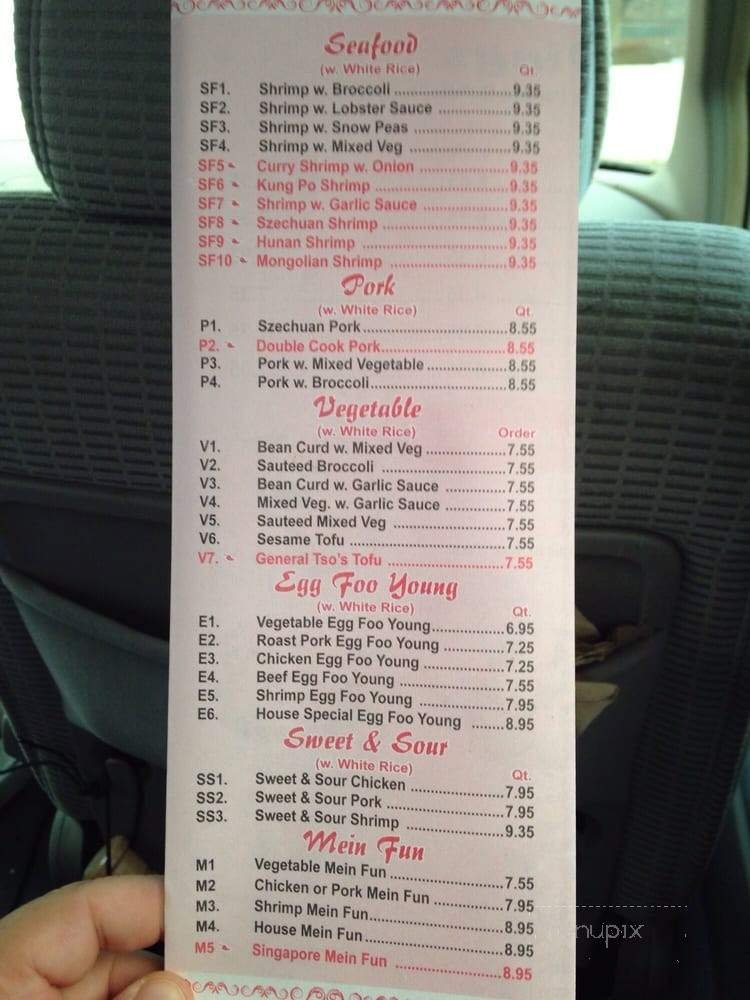 Seafood
(w. White Rice) Qt.
SF1. Shrimp w. Broccoli ............................9.35
SF2. Shrimp w. Lobster Sauce ..................9.35
SF3. Shrimp w. Snow Peas .......................9.35
SF4. Shrimp w. Mixed Veg ........................9.35
SF5 Curry Shrimp w. Onion .....................9.35
SF6 Kung Po Shrimp ...............................9.35
SF7 Shrimp w. Garlic Sauce ....................9.35
SF8 Szechuan Shrimp .............................9.35
SF9 Hunan Shrimp ..................................9.35
SF10 Mongolian Shrimp ............................9.35
Pork
(w. White Rice) Qt.
P1. Szechuan Pork...................................8.55
P2. Double Cook Pork..............................8.55
P3. Pork w. Mixed Vegetable ...................8.55
P4. Pork w. Broccoli.................................8.55
Vegetable
(w. White Rice) Order
V1. Bean Curd w. Mixed Veg ...................7.55
V2. Sauteed Broccoli ..............................7.55
V3. Bean Curd w. Garlic Sauce ..............7.55
V4. Mixed Veg. w. Garlic Sauce ...............7.55
V5. Sauteed Mixed Veg ...........................7.55
V6. Sesame Tofu .....................................7.55
V7. General Tso's Tofu ............................7.55
Egg Foo Young
(w. White Rice) Qt.
E1. Vegetable Egg Foo Young..................6.95
E2. Roast Pork Egg Foo Young ...............7.25
E3. Chicken Egg Foo Young ....................7.25
E4. Beef Egg Foo Young ..........................7.55
E5. Shrimp Egg Foo Young .....................7.95
E6. House Special Egg Foo Young ........8.95
Sweet & Sour
(w. White Rice) Qt.
SS1. Sweet & Sour Chicken .......................7.95
SS2. Sweet & Sour Pork .............................7.95
SS3. Sweet & Sour Shrimp ........................9.35
Mein Fun
M1 Vegetable Mein Fun ............................7.55
M2 Chicken or Pork Mein Fun .................7.95
M3. Shrimp Mein Fun.................................8.95
M4. House Mein Fun..................................8.95
M5 Singapore Mein Fun ..........................8.95